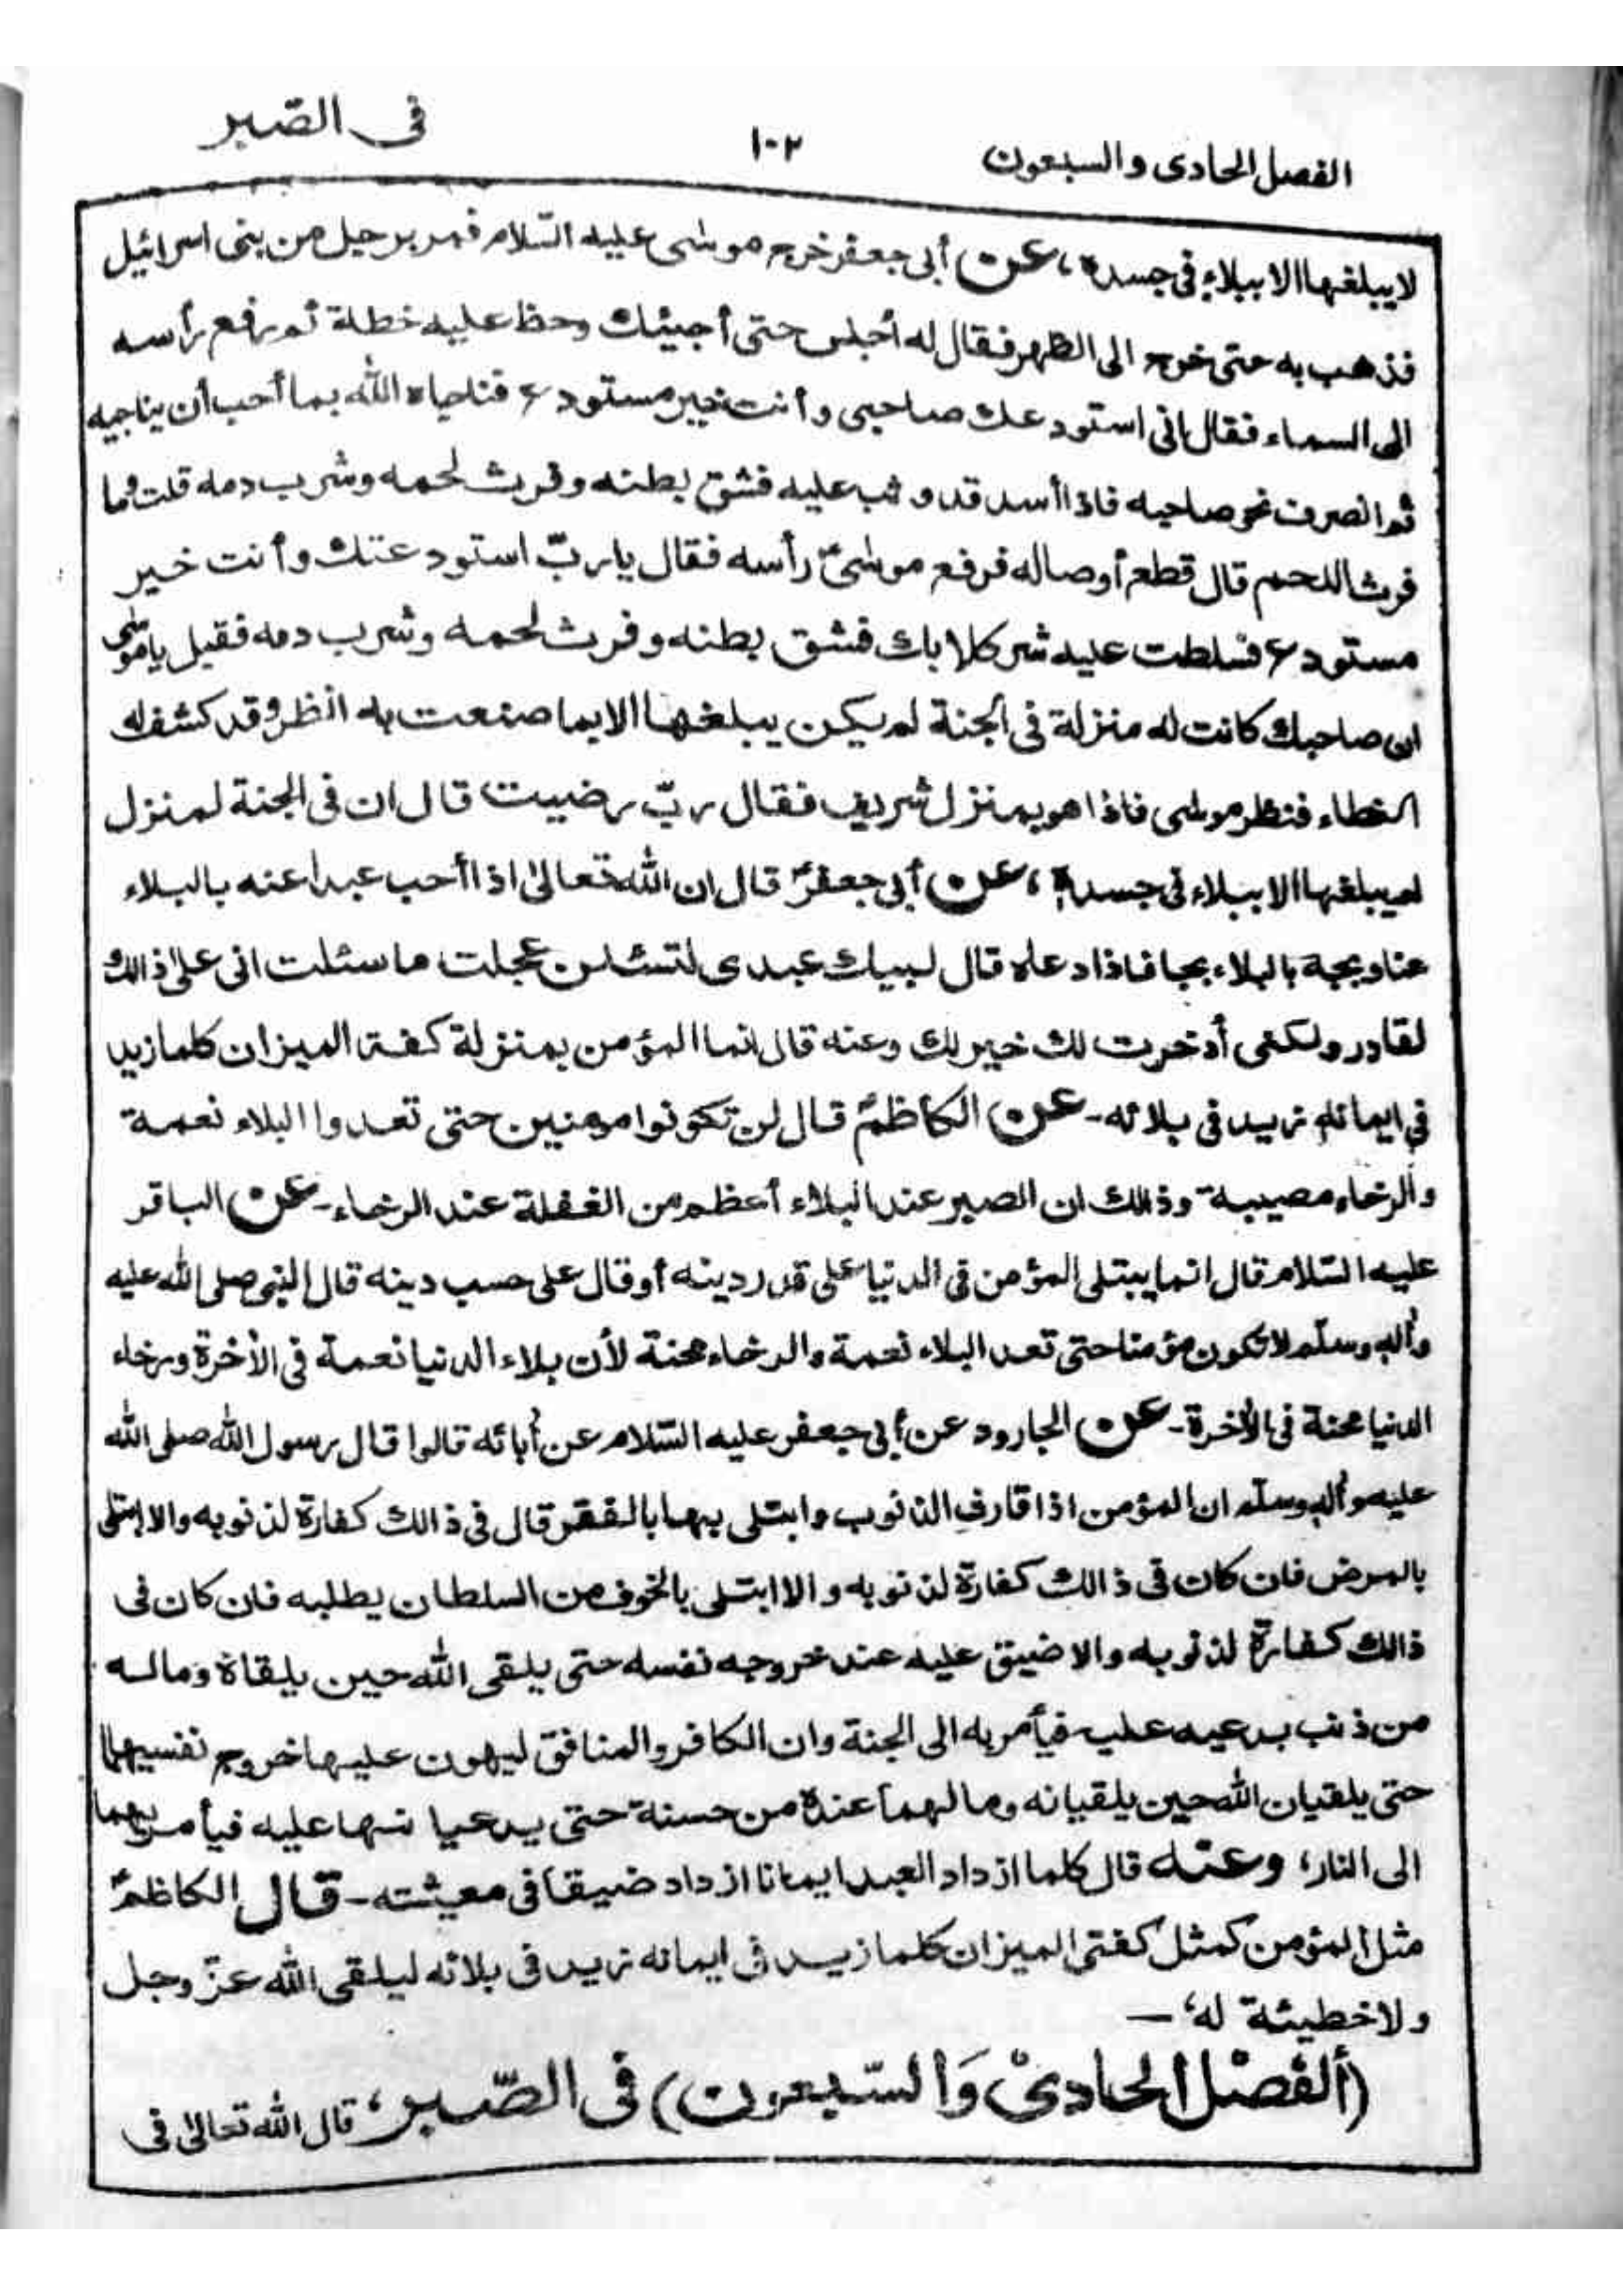 الفصل الحادى والسبعون ١٠٢ فى الصّبر
لايبلغها الا ببلاء فى جسده، عن أبى جعفر خرج موسى عليه السّلام فمر برجل من بنى اسرائيل
فذهب به حتى خرج الى الظهر فقال له أجلس حتى أجيئك وخط عليه خطلة ثم رفع رأسه
الى السماء فقال انى استودعك صاحبى وأنت خير مستودع فناجاه الله بما أحب أن يناجيه
ثم انصرف نحو صاحبه فاذا أسد قد وثب عليه فشق بطنه وفرث لحمه وشرب دمه قلت وما
فرث اللحم قال قطع أوصاله فرفع موسىٰؑ رأسه فقال يارب استودعتك وأنت خير
مستودع فسلطت عليه شر كلابك فشق بطنه وفرث لحمه وشرب دمه فقيل ياموسى
ان صاحبك كانت له منزلة فى الجنة لم يكن يبلغها الا بما صنعت به انظر وقد كشف له
الغطاء فنظر موسى فاذا هو بمنزل شريف فقال ربّ رضيت قال ان فى الجنة لمنزل
لم يبلغها الا ببلاء فى جسده، عن أبى جعفرؑ قال ان الله تعالىٰ اذا أحب عبدا عنه بالبلاء
عنا وبجه بالبلاء بجا فاذا دعاه قال لبيك عبدى لتسئلن عجلت ما سئلت انى علىٰ ذالك
لقادر ولكنى أدخرت لك خير لك وعنه قال انما المؤمن بمنزلة كفة الميزان كلما زيد
فى ايمانه زيد فى بلائه۔ عن الكاظمؑ قال لن تكونوا مومنين حتى تعدوا البلاء نعمة
والرخاء مصيبة وذالك ان الصبر عند البلاء أعظم من الغفلة عند الرخاء۔ عن الباقر
عليه السّلام قال انما يبتلى المؤمن فى الدنيا على قدر دينه أو قال على حسب دينه قال النبى صلى الله عليه
وأله وسلّم لا تكون مؤمنا حتى تعد البلاء نعمة والرخاء محنة لأن بلاء الدنيا نعمة فى الأخرة ورخاء
الدنيا محنة فى الأخرة۔ عن الجارود عن أبى جعفر عليه السّلام عن أبائه قالوا قال رسول الله صلى الله
عليه وأله وسلّم ان المؤمن اذا قارف الذنوب وابتلى بها بالفقر قال فى ذالك كفارة لذنوبه والا ابتلى
بالمرض فان كان فى ذالك كفارة لذنوبه والا ابتلى بالخوف من السلطان يطلبه فان كان فى
ذالك كفارة لذنوبه والا ضيق عليه عند خروجه نفسه حتى يلقى الله حين يلقاه وماله
من ذنب يدعيه عليه فيأمر به الى الجنة وان الكافر والمنافق ليهون عليها خروج نفسيهما
حتى يلقيان الله حين يلقيانه وما لهما عنده من حسنة حتى يدعيا نها عليه فيأمر بهما
الى النار، وعنه قال كلما ازداد العبد ايمانا ازداد ضيقا فى معيشته۔ قال الكاظمؑ
مثل المؤمن كمثل كفتى الميزان كلما زيد فى ايمانه زيد فى بلائه ليلقى الله عزّ وجل
ولا خطيئة له، ــ
(ألفصل الحادى وَالسّبعون) فى الصّبر، قال الله تعالىٰ فى